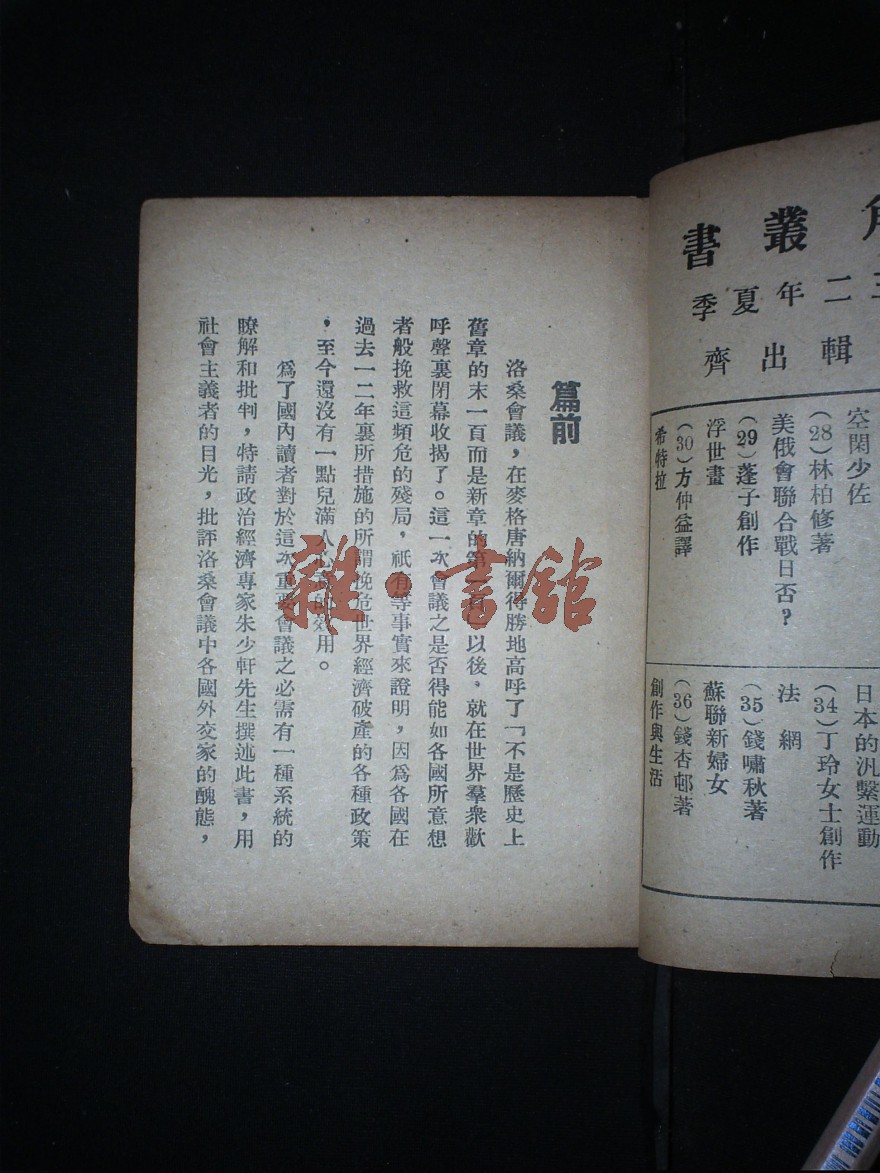 叢書
二年夏季
輯出齊
空閑少佐
(28)林柏修著
美俄會聯合戰日否？
(29)蓬子創作
浮世畫
(30)方仲益譯
希特拉
日本的汎繫運動
(34)丁玲女士創作
法網
(35)錢嘯秋著
蘇聯新婦女
(36)錢杏邨著
創作與生活
篇前
洛桑會議，在麥格唐納爾得勝地高呼了「不是歷史上
舊章的末一頁而是新章的第一頁」以後，就在世界羣衆歡
呼聲裏閉幕收揭了。這一次會議之是否得能如各國所意想
者般挽救這頻危的殘局，祇有等事實來證明，因爲各國在
過去一二年裏所措施的所謂挽危世界經濟破產的各種政策
，至今還沒有一點兒滿人心的效用。
爲了國內讀者對於這次重要會議之必需有一種系統的
瞭解和批判，特請政治經濟專家朱少軒先生撰述此書，用
社會主義者的目光，批評洛桑會議中各國外交家的醜態，
雜·書舘